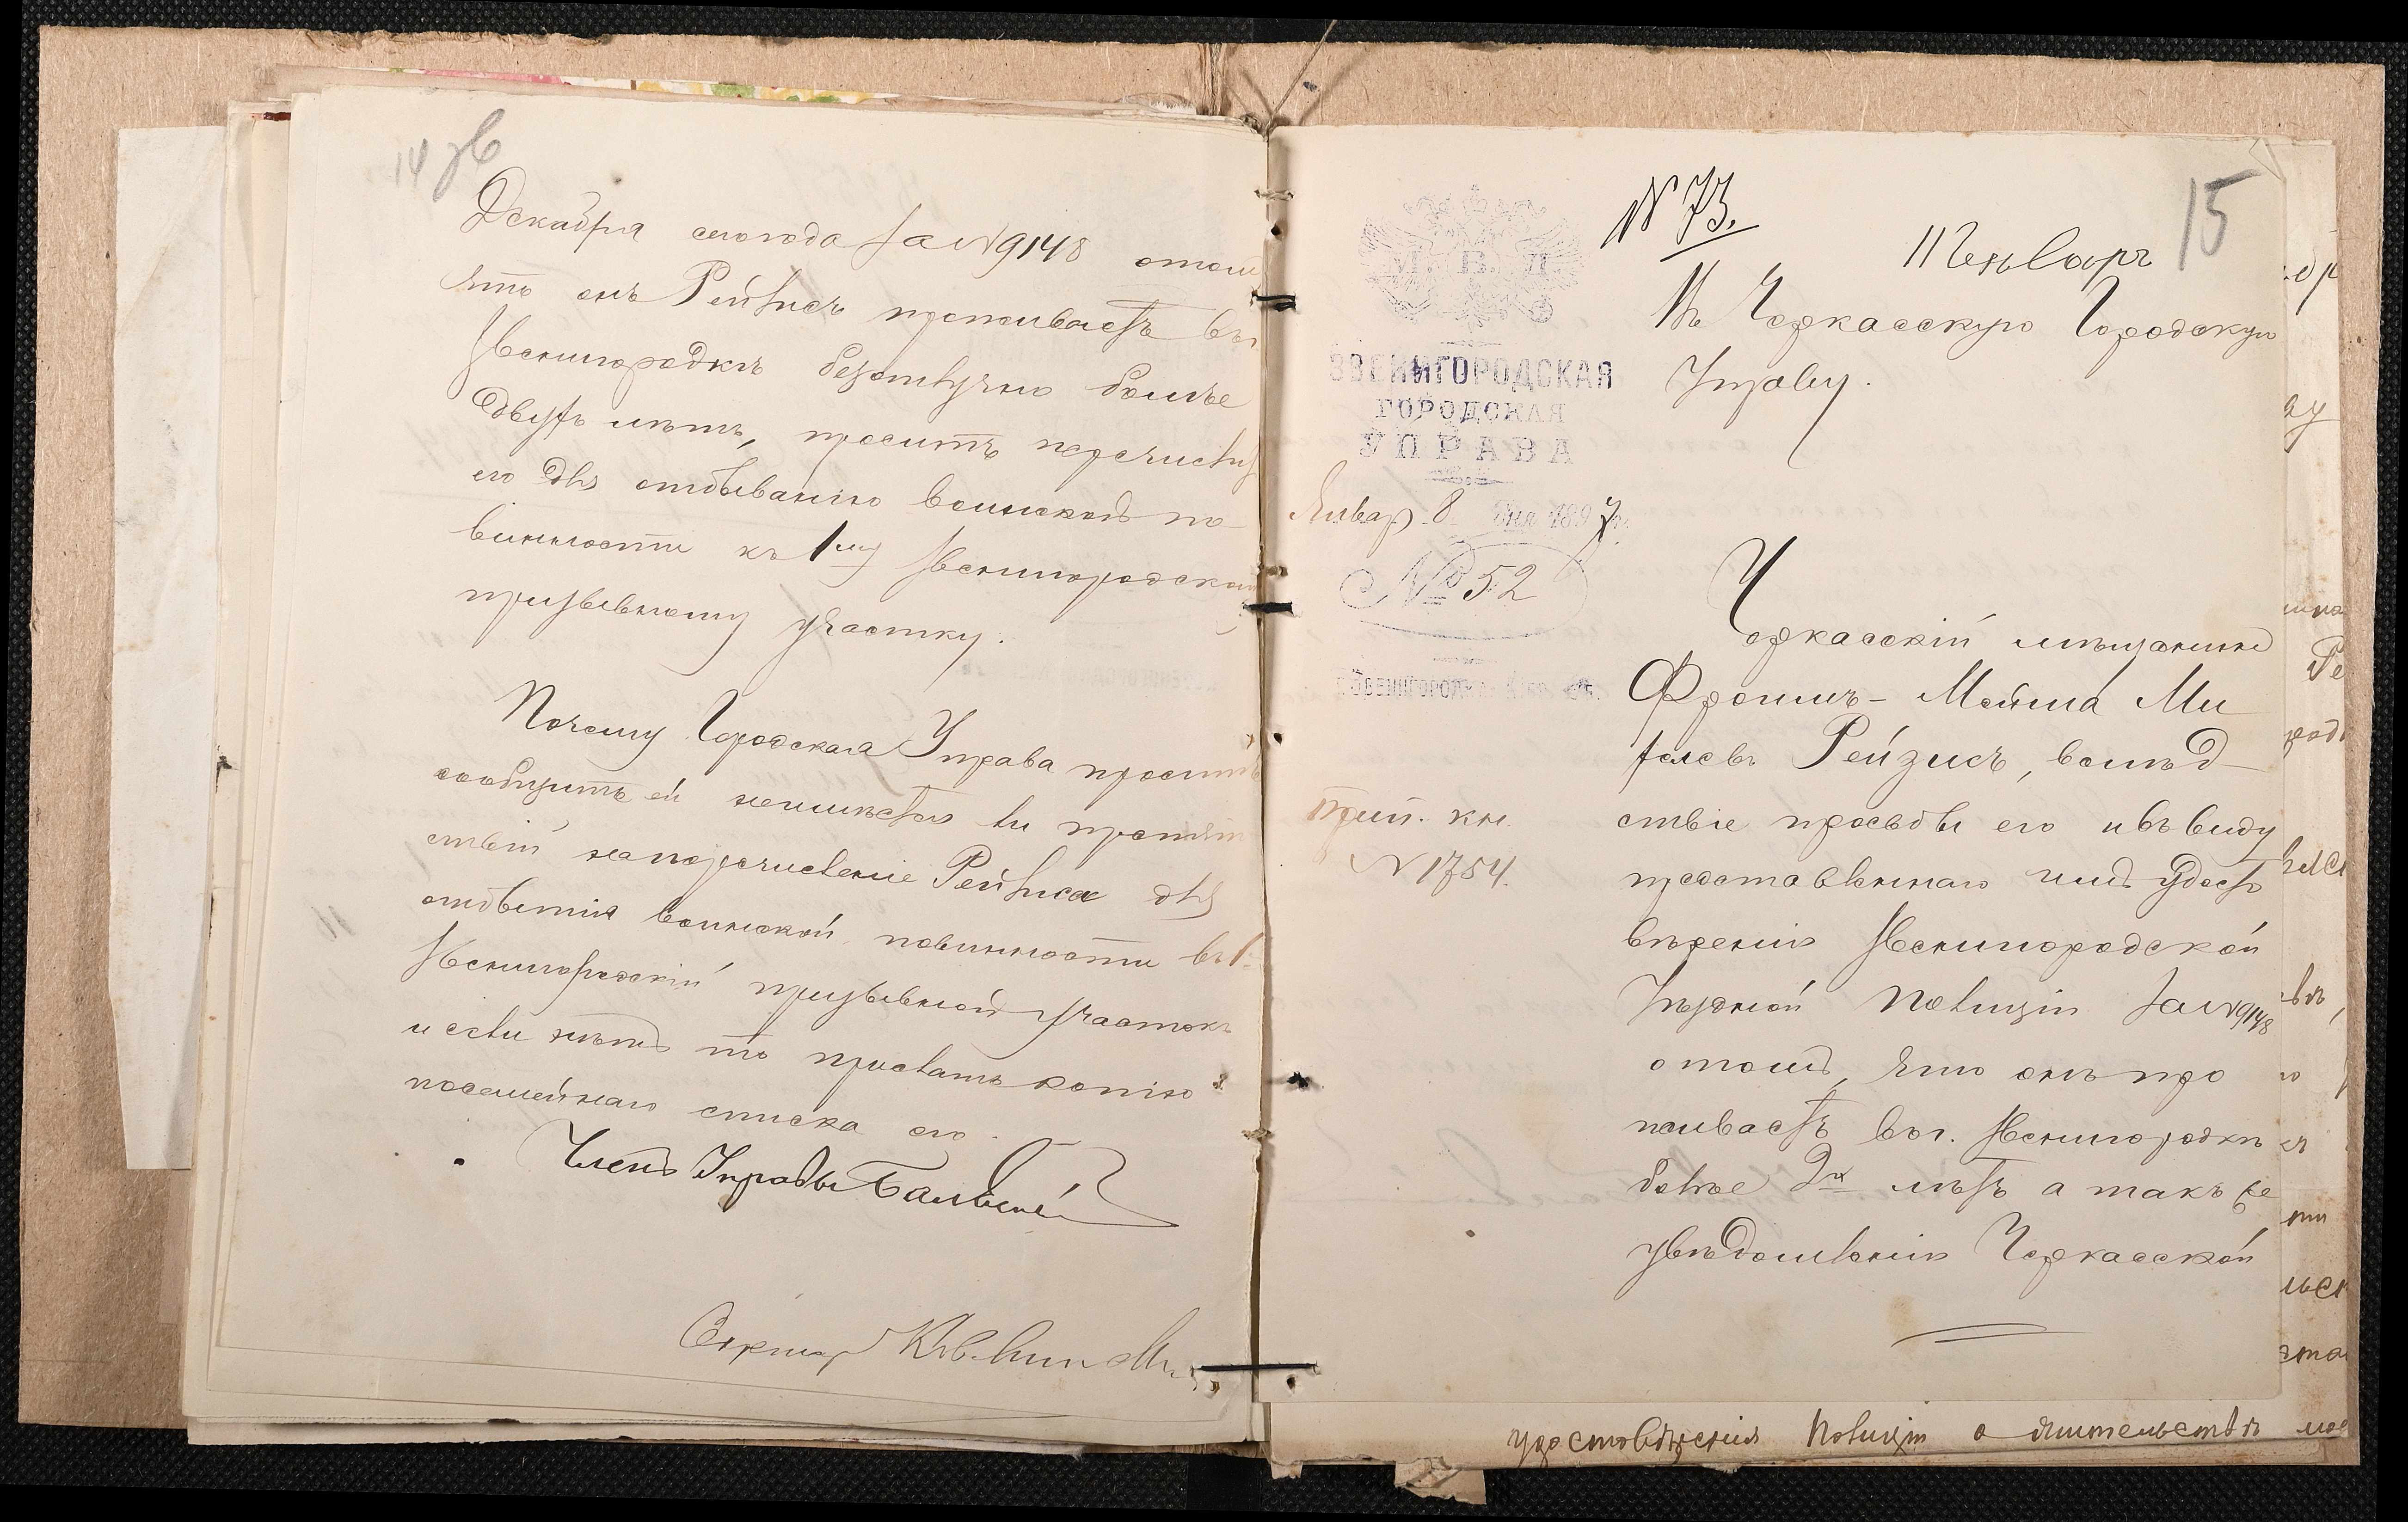 14 зв
Декабря сего года за №9148 о том
что онъ Рейзисъ проживаетъ въ
Звенигородкѣ безотлучно болѣе
двухъ лѣтъ, проситъ перечислить
его для отбыванію воинской по-
винности къ 1му Звенигородскому
призывному участку.
Почему Городская Управа проситъ
сообщить ей неимѣется ли препят
ствій на перечисленіе Рейзиса для
отбытія воинской повинности въ 1
Звенигородскій призывной участокъ
и если нѣтъ то прислать копію
посемейнаго списка его.
Членъ Управы
Секретарь
15
№ 73.
11 Генваря
Въ Черкасскую Городскую
Управу.
М. В. Д.
ЗВЕНИГОРОДСКАЯ
ГОРОДСКАЯ
УПРАВА
Январ 8 дня 1897 г.
№ 52
Г. ЗВЕНИГОРОДКА
Черкасскій мѣщанинъ
Фроимъ-Мойша Ми
хелевъ Рейзисъ, вслѣд-
ствіе просьбы его и въ виду
представленнаго имъ удосто
вѣренія Звенигородской
Уѣздной Полиціи за №9148
о томъ, что онъ про
живаетъ въ г. Звенигородкѣ
болѣе 2х лѣтъ а такъ же
увѣдомленія Черкасской
Прип. кн.
№ 1754.
удостовѣренія Полиціи о жительствѣ мое